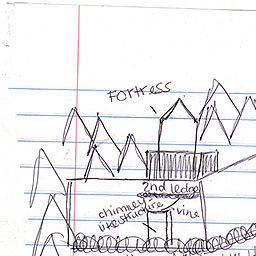 Fortress
2nd ledge
chimney
likestructure
vine